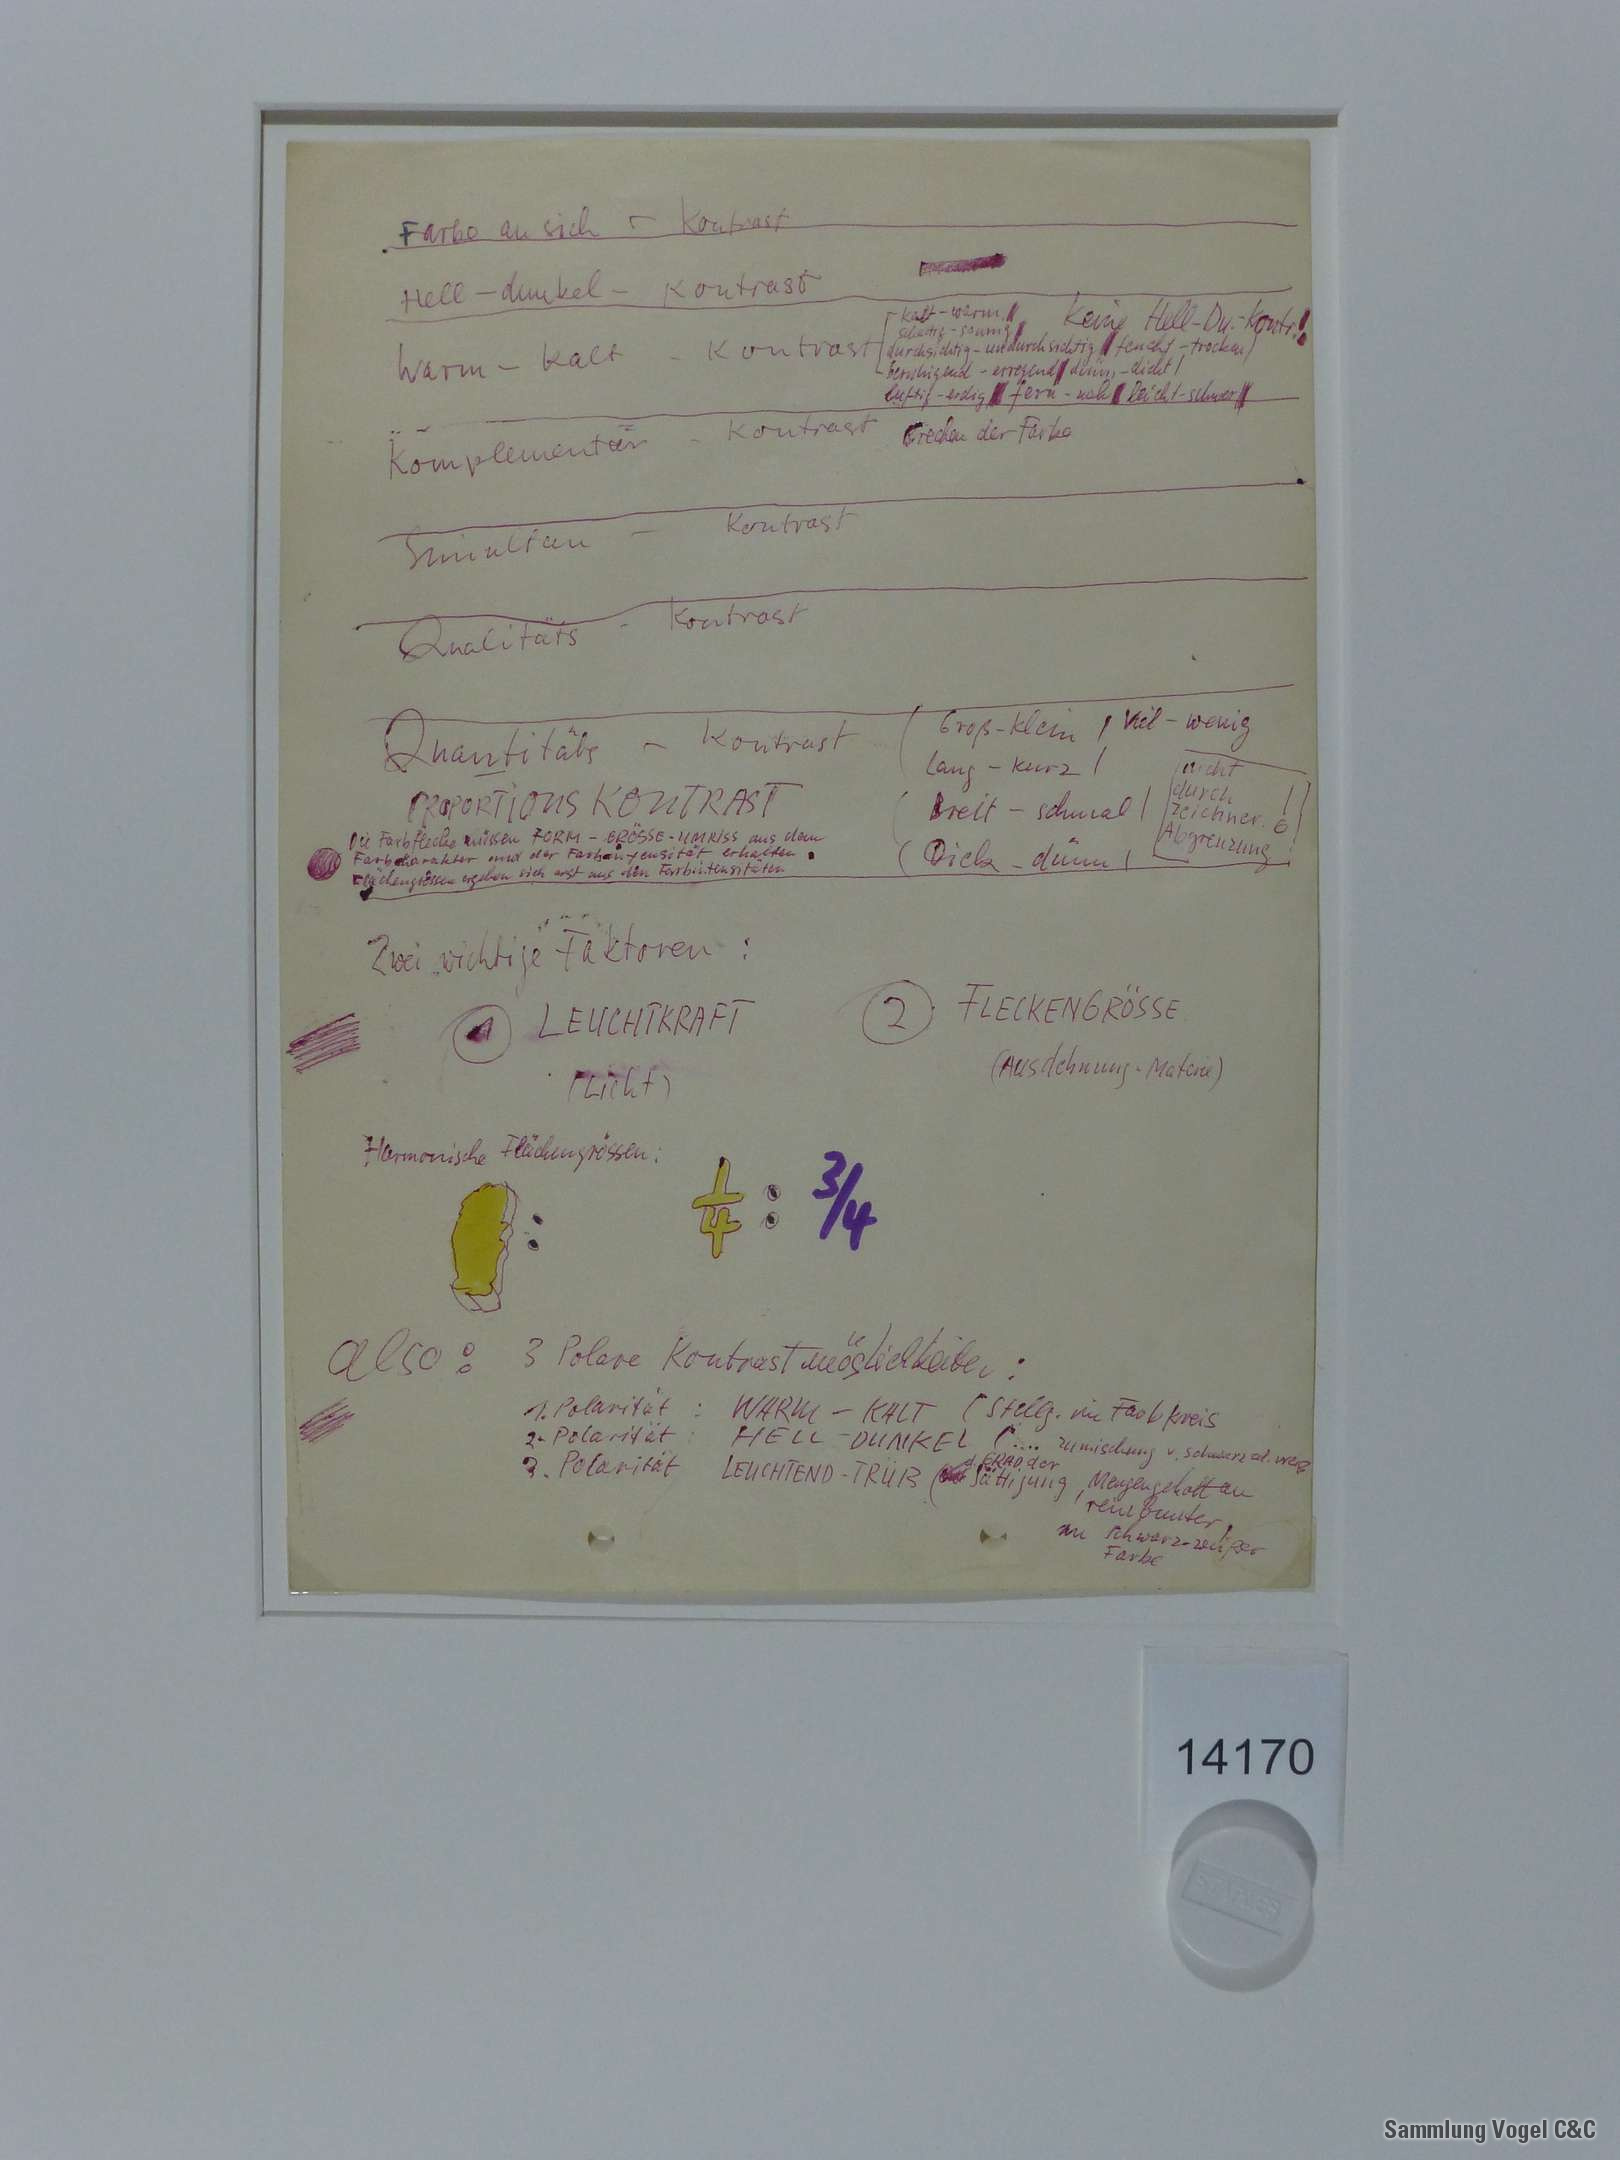 Farbe an sich - Kontrast
Hell - dunkel - Kontrast
Warm - Kalt - Kontrast
kalt - warm
schattig - sonnig
durchsichtig - undurchsichtig feucht - trocken
beruhigend - erregend dünn - dicht
luftig - erdig fern - nah leicht - schwer
Keine Hell-Du.-Kontr.!
Komplementär - Kontrast Brechen der Farbe
Simultan - Kontrast
Qualitäts - Kontrast
Quantitäts - Kontrast
(Groß - klein / Viel - wenig
lang - kurz /
(Breit - schmal /
(Dick - dünn /
nicht
durch
zeichner.
Abgrenzung
PROPORTIONS KONTRAST
Die Farbflecke müssen FORM - GRÖSSE - UMRISS aus dem
Farbcharakter und der Farbintensität erhalten.
Flächengrössen ergeben sich erst aus den Farbintensitäten
Zwei wichtige Faktoren :
1 LEUCHTKRAFT
(Licht)
2 FLECKENGRÖSSE
(Ausdehnung - Materie)
Harmonische Flächengrössen:
:
1/4 : 3/4
also : 3 Polare Kontrastmöglichkeiten :
1. Polarität : WARM - KALT (Stellg. im Farbkreis
2. Polarität : HELL - DUNKEL (.... Zumischung v. schwarz od. weiß
3. Polarität LEUCHTEND - TRÜB (d. GRAD der Sättigung, Mengengehalt an
rein bunter,
an schwarz-weißer
Farbe
14170
STAPLES
Sammlung Vogel C&C